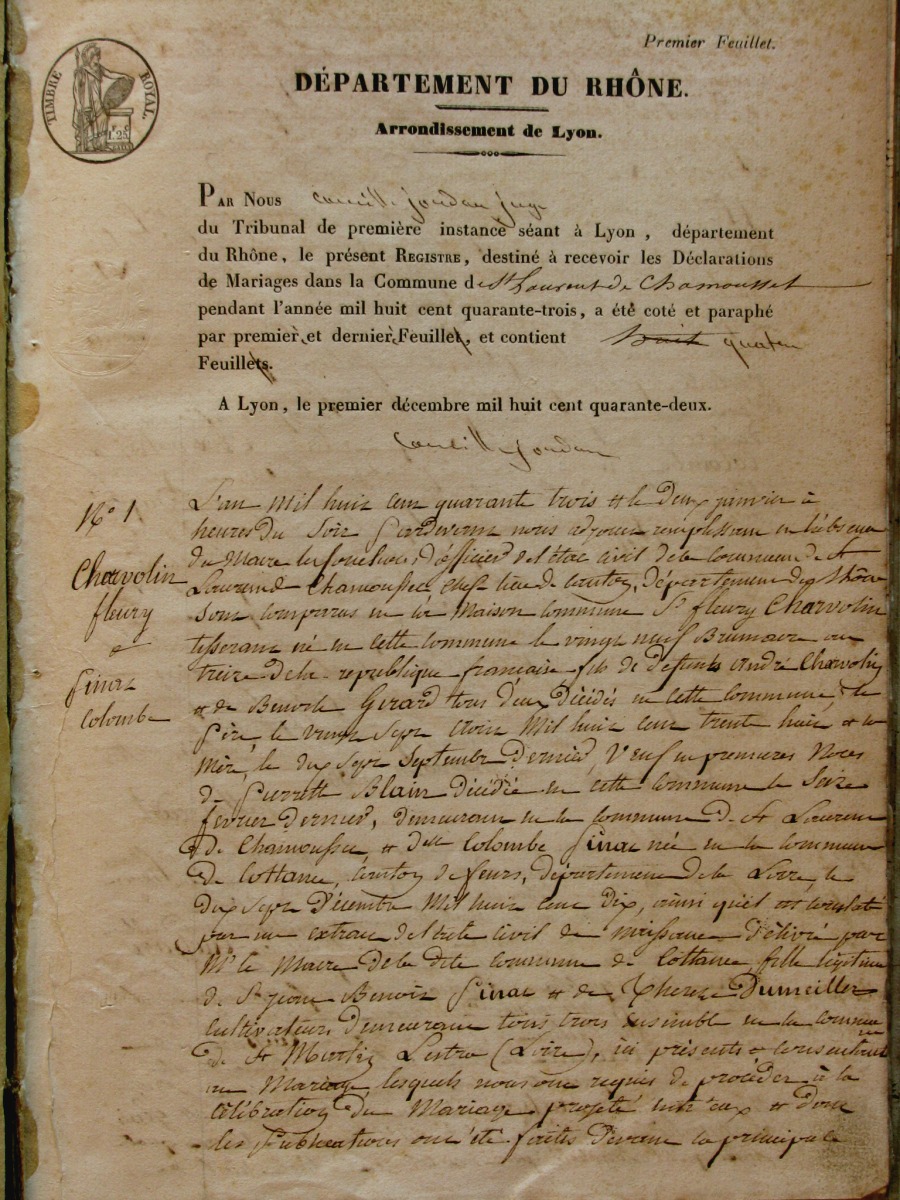 Premier Feuillet.
TIMBRE ROYAL.
1.25
DÉPARTEMENT DU RHÔNE.
Arrondissement de Lyon.
PAR NOUS Camille Jordan juge
du Tribunal de première instance séant à Lyon, département
du Rhône, le présent REGISTRE, destiné à recevoir les Déclarations
de Mariages dans la Commune de St Laurent de Chamousset
pendant l'année mil huit cent quarante-trois, a été coté et paraphé
par premier et dernier Feuillet, et contient huit quatre
Feuillets.
A Lyon, le premier décembre mil huit cent quarante-deux.
Camille Jordan
N° 1
Charvolin
fleury
&
Pinac
Colombe
L'an Mil huit cent quarante trois & le Deux janvier à
heures Du Soir Pardevant nous adjoint remplissant en l'absence
du Maire les fonctions d'officier de l'état civil de la commune de St
Laurent de Chamousset, chef lieu de canton, Département du Rhône
Sont comparus en la Maison commune Sr fleury Charvolin
tisserant né en cette commune le vingt neuf Brumaire an
treize de la république française fils de Défunts André Charvolin
& de Benoite Girard tous deux Décédés en cette commune, le
Père, le vingt sept Mil huit cent trente huit & la
Mère, le dix sept Septembre Dernier, Veuf en premières Noces
de Pierrette Blain Décédée en cette commune le Seize
fevrier Dernier, demeurant en la commune De St Laurent
de Chamousset, & dlle Colombe Pinac née en la commune
de Cottance, canton de feurs, département de la Loire, le
Dix Sept Décembre Mil huit cent Dix, ainsi qu'il est constaté
par un extrait de l'acte civil de naissance Délivré par
Mr le Maire De la dite commune de Cottance, fille légitime
de Sr jean Benoit Pinac & de Thereze Dumeiller
cultivateurs demeurant tous trois ensemble en la commune
de St Martin Lestra (Loire), ici présents & consentant
au Mariage, lesquels nous ont requis de procéder à la
célébration Du Mariage projeté entr'eux & dont
les Publications ont été faites Devant la principale